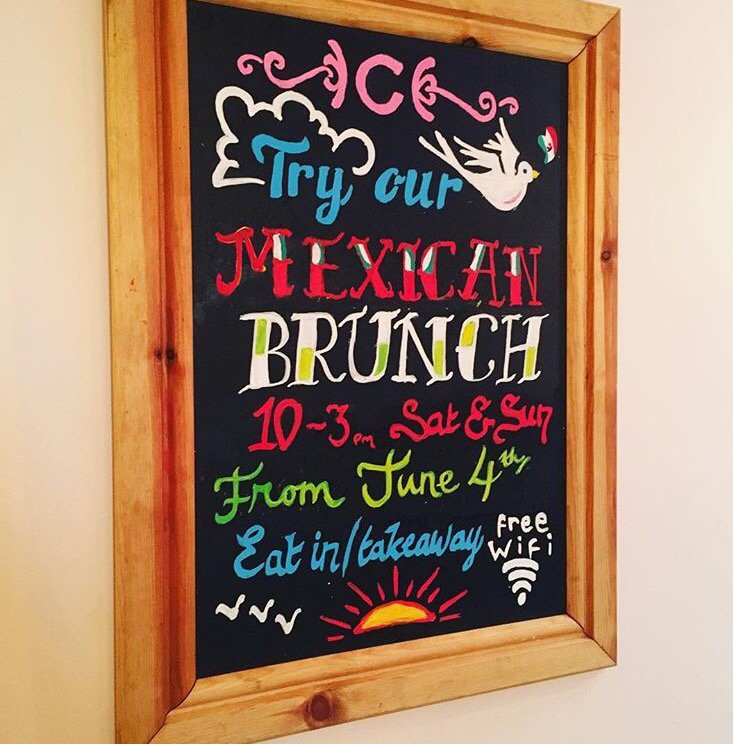 C
Try our
MEXICAN
BRUNCH
10-3pm Sat & Sun
From June 4th
Eat in/takeaway
free
WiFi